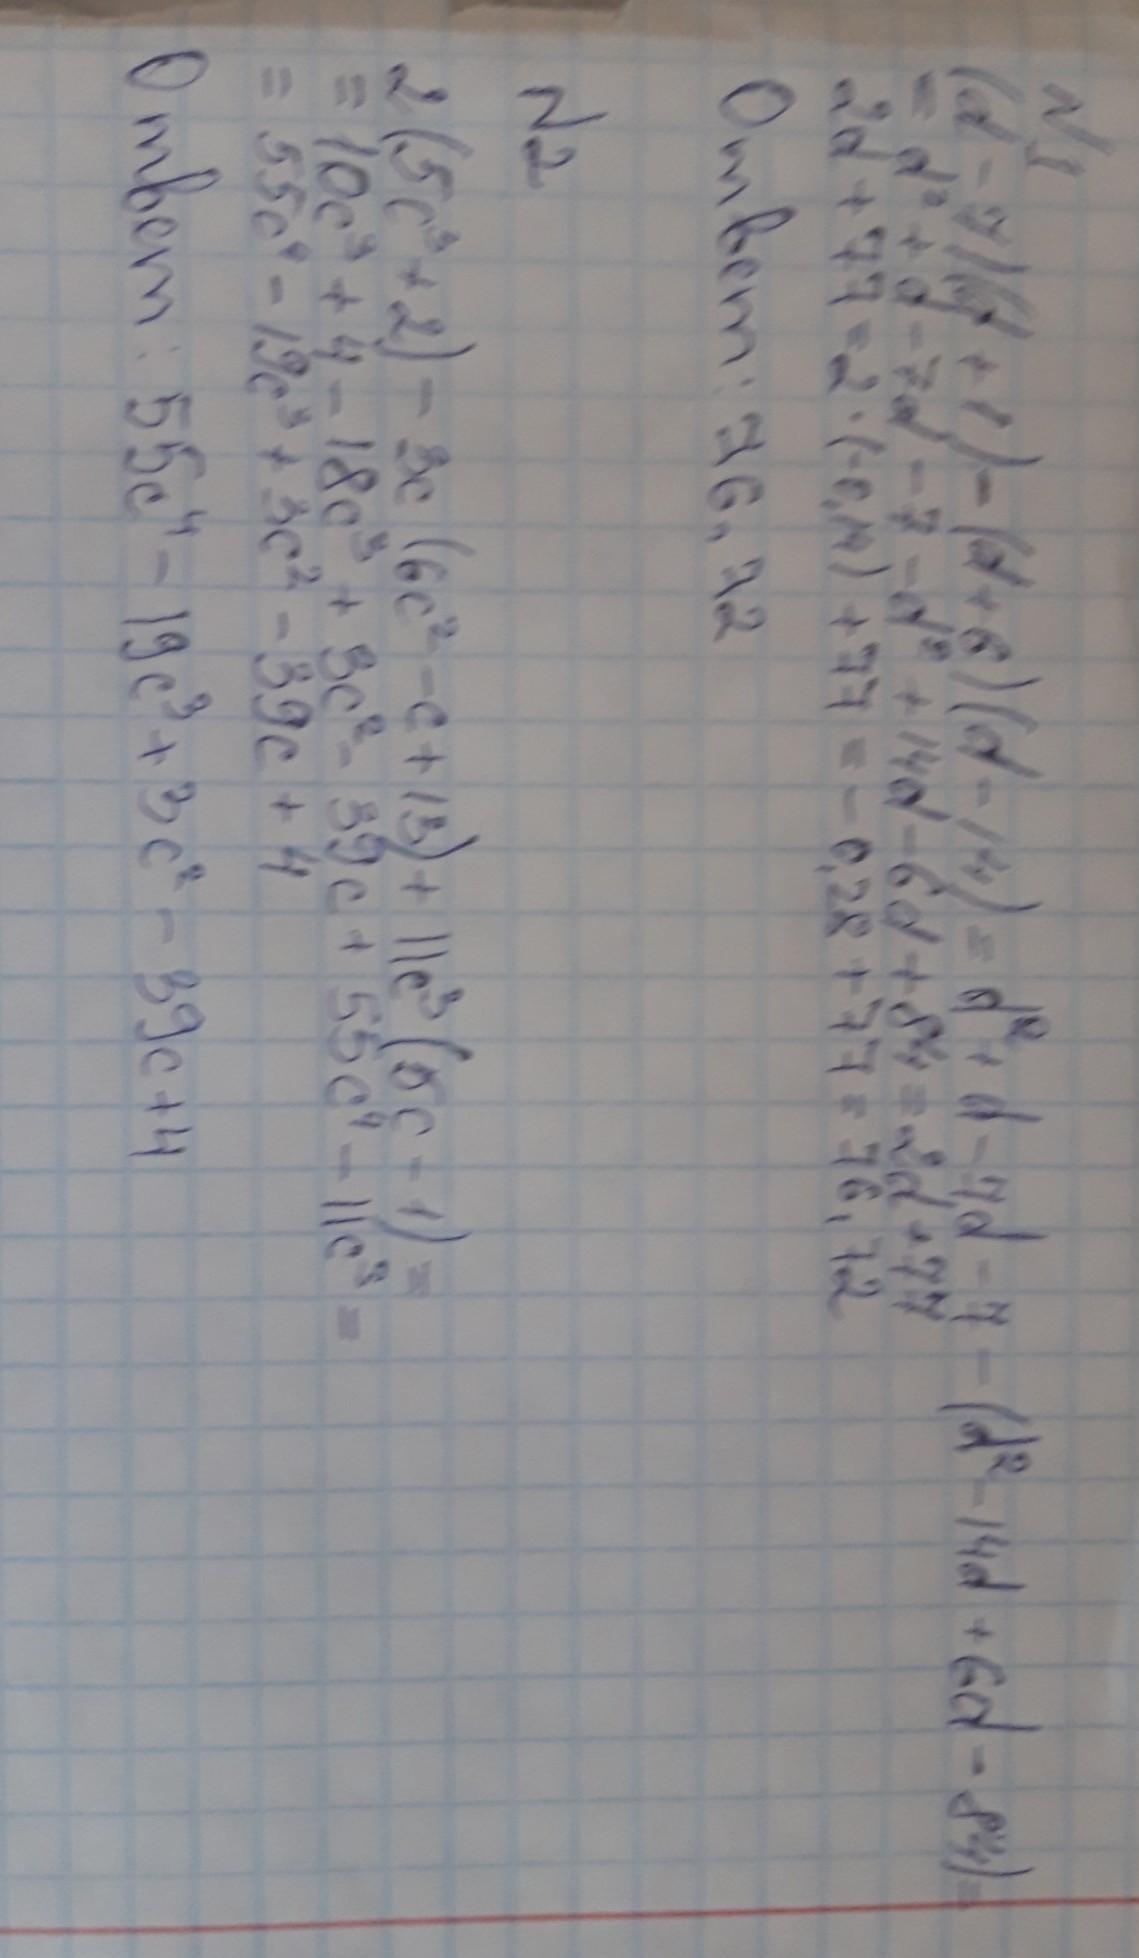 N1
(d - 7)(d + 1) - (d + 6)(d - 14) = d² + d - 7d - 7 - (d² - 14d + 6d - 84) =
= d² + d - 7d - 7 - d² + 14d - 6d + 84 = 2d + 77
2d + 77 = 2 · (-0,14) + 77 = -0,28 + 77 = 76,72
Ответ: 76,72
N2
2(5c³ + 2) - 3c (6c² - c + 13) + 11c³(5c - 1) =
= 10c³ + 4 - 18c³ + 3c² - 39c + 55c⁴ - 11c³ =
= 55c⁴ - 19c³ + 3c² - 39c + 4
Ответ: 55c⁴ - 19c³ + 3c² - 39c + 4